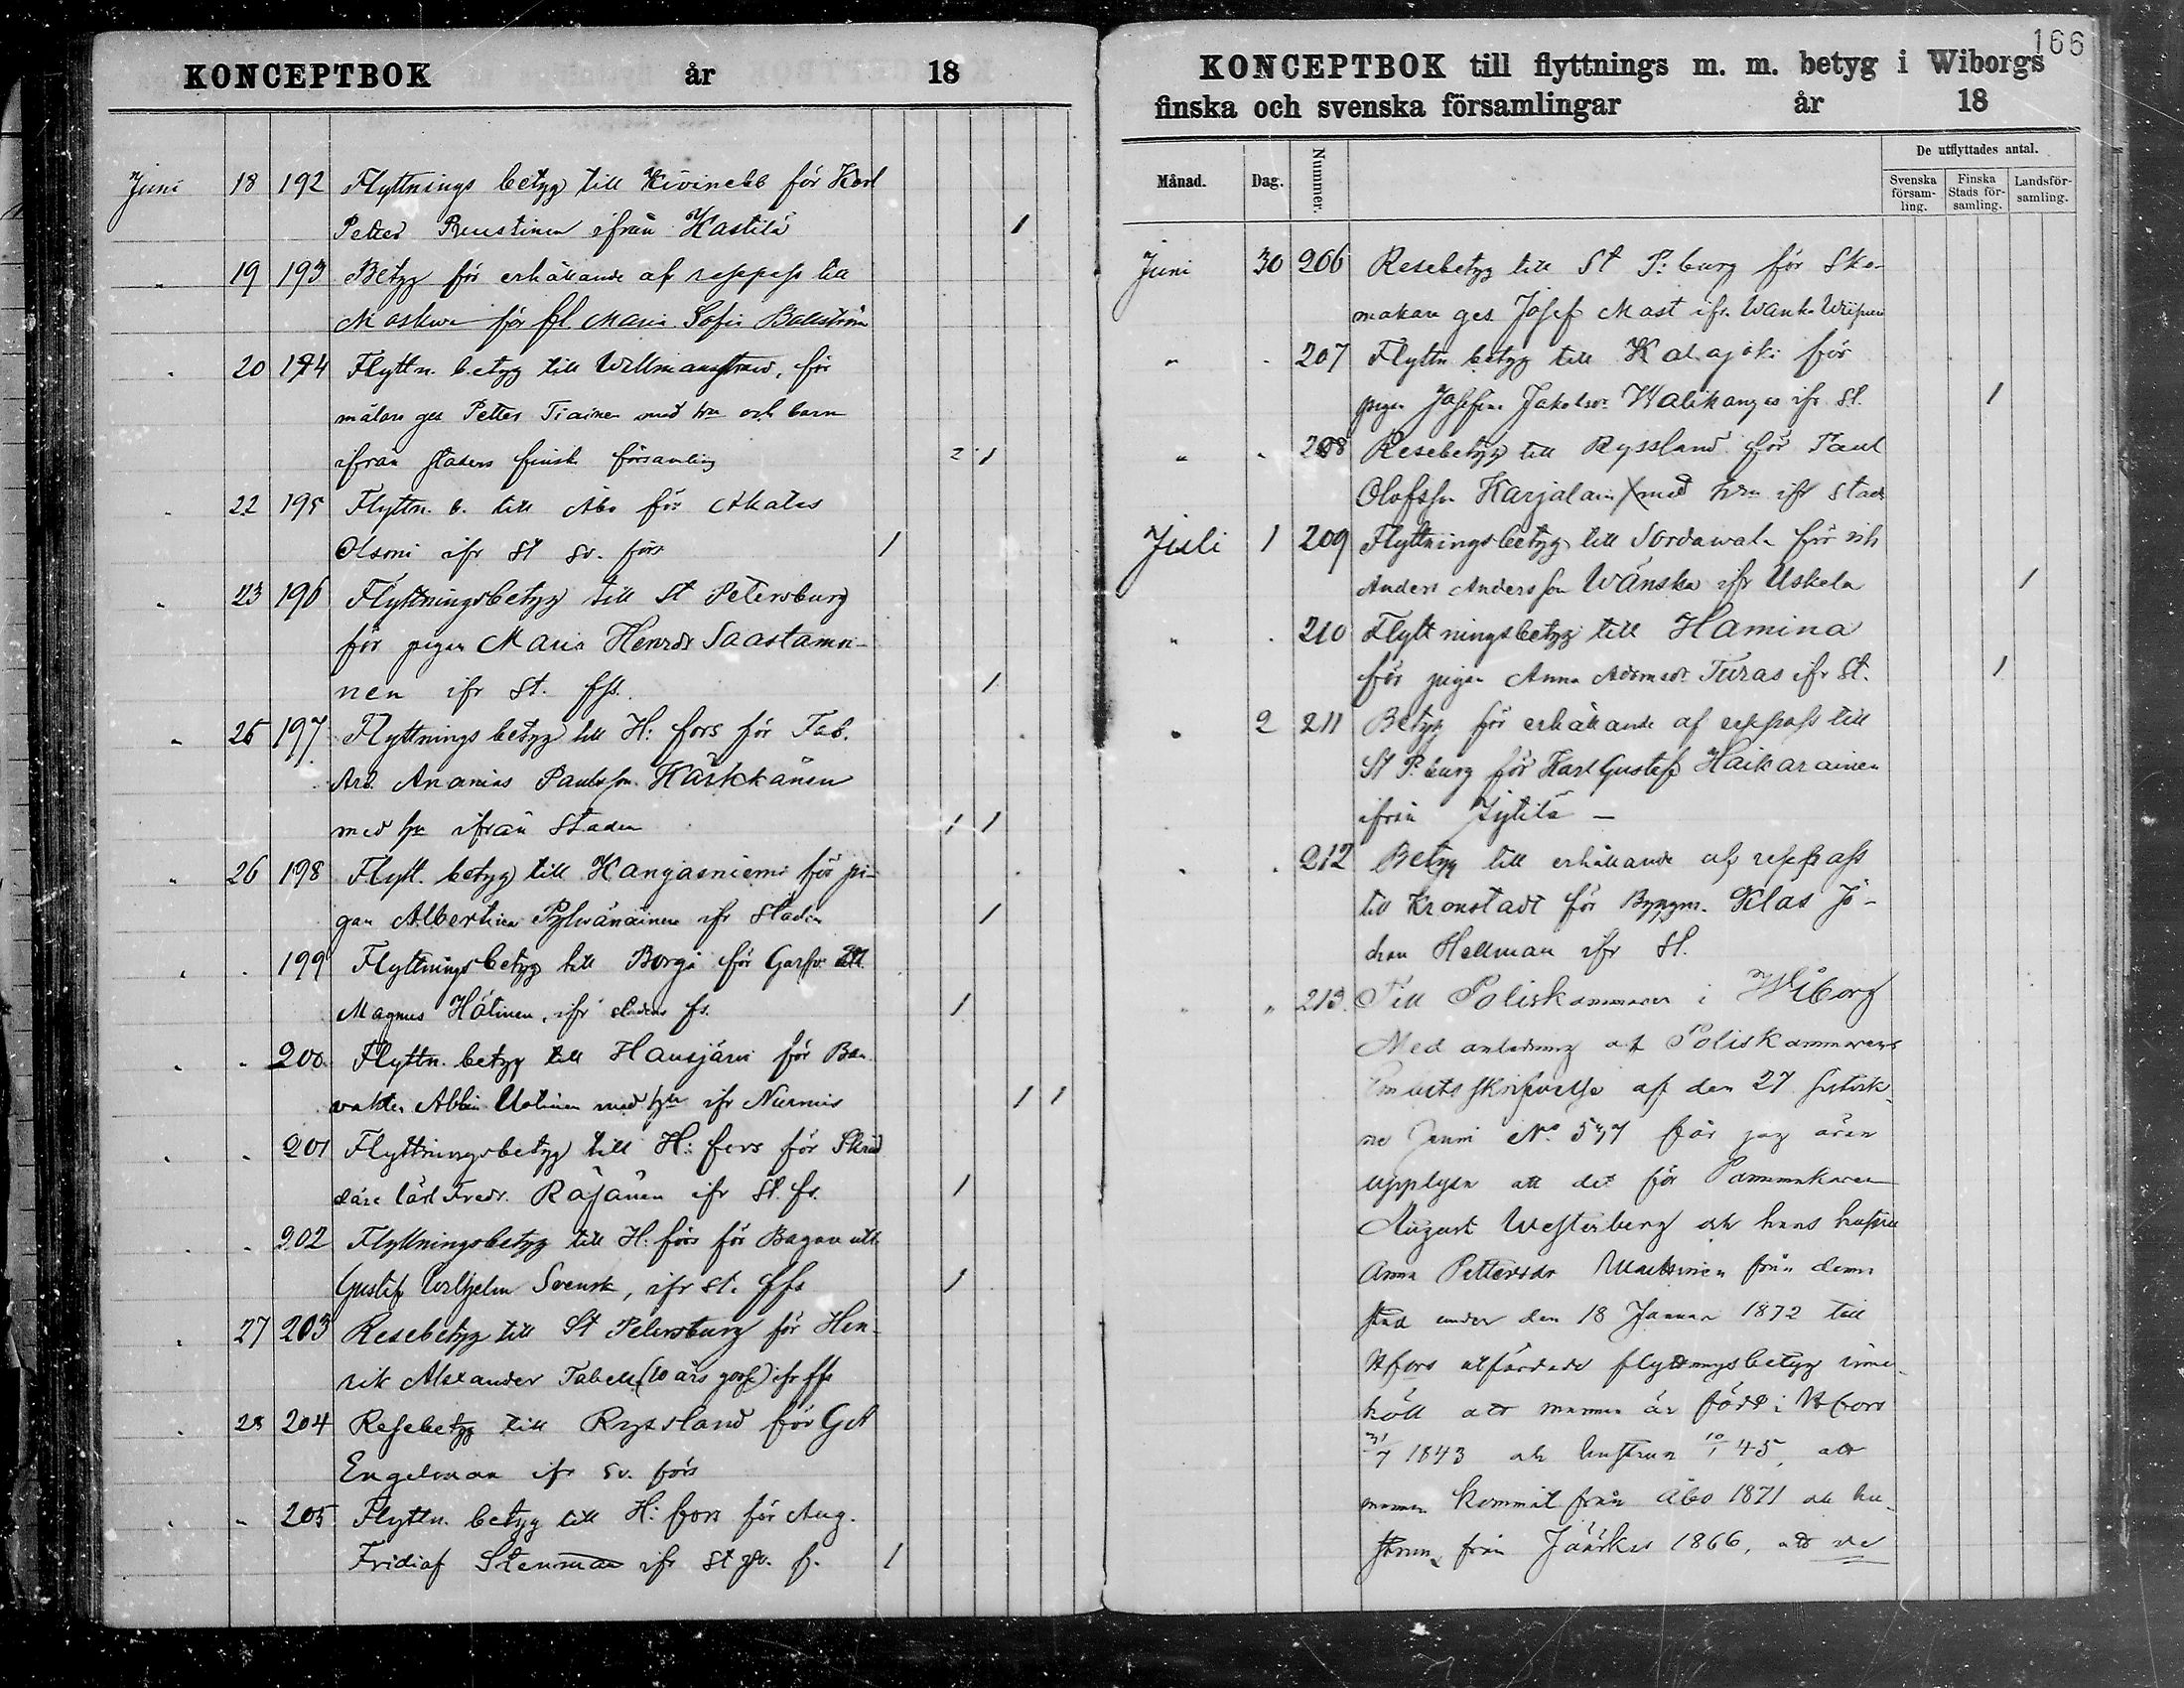 KONCEPTBOK år 18
Juni 18 192 Flyttnings betyg till Kivinebb för Karl
Petter Ruustinen ifrån Hastilä 1
" 19 193 Betyg för erhållande af respass till
Moskwa för fl. Maria Sofia Bollström
" 20 194 Flyttn. betyg till Willmanstrand, för
målare ges Petter Tiainen med hu och barn
ifrån stadens finska församling 2 1
" 22 195 Flyttn. b. till Åbo för Akates
Olsoni ifr St sv. förs 1
" 23 196 Flyttningsbetyg till St Petersburg
för pigan Maria Henrdr Saastamoi-
nen ifr St. ffs. 1
" 25 197 Flyttnings betyg till H:fors för Fab.
Arb. Ananias Paulsson Härkkänen
med hu ifrån Staden 1 1
" 26 198 Flytt. betyg till Kangasniemi för pi-
gan Albertina Pylvänäinen ifr Staden 1
" " 199 Flyttningsbetyg till Borgå för Garfv.
Magnus Hötinen, ifr stadens fs. 1
" " 200 Flyttn. betyg till Hausjärvi för Ban
vakten Albin Uotinen med hu ifr Nurmis 1 1
" " 201 Flyttningsbetyg till H:fors för Skräd
dare lärl Fredr. Räsänen ifr St. fs. 1
" " 202 Flyttningsbetyg till H:fors för Bagare
Gustaf Wilhelm Svensk, ifr st. ffs 1
" 27 203 Resebetyg till St Petersburg för Hen-
rik Alexander Tabell (10 års gosse) ifr ffs
" 28 204 Resebetyg till Ryssland för
Engelman ifr sv. förs
" " 205 Flyttn. betyg till H:fors för Aug.
Fridiof Stenman ifr St sv. f. 1
166
KONCEPTBOK till flyttnings m. m. betyg i Wiborgs
finska och svenska församlingar år 18
Månad. Dag. Nummer. De utflyttades antal.
Svenska församling. Finska Stads församling. Landsförsamling.
Juni 30 206 Resebetyg till St P:burg för Sko-
makare ges. Josef Mast ifr. Wanha Wiipuri
" " 207 Flyttn. betyg till Kalajoki för
pigan Josefina Jakobsdr. Walikangas ifr St. 1
" " 208 Resebetyg till Ryssland för Paul
Olofsson Karjalain med hu ifr Stade
Juli 1 209 Flyttningsbetyg till Sordawala för
Anders Andersson Wänskä ifr Uskela 1
" " 210 Flyttningsbetyg till Hamina
för pigan Anna Adamsdr. Turas ifr St. 1
" 2 211 Betyg för erhållande af respass till
St P:burg för Karl Gustaf Haikarainen
ifrån
" " 212 Betyg till erhållande af respass
till Kronstadt för Byggm. Klas Jo-
han Hellman ifr St.
" " 213. Till Poliskammaren i Wiborg
Med anledning af Poliskammarens
Embets skrifvelse af den 27 sistvik-
ne Juni No 577 får jag ären
upplysa att det för
August Westerberg och hans hustru
Anna Pettersdr från denna
stad under den 18 Januari 1872 till
Hfors utfärdade flyttningsbetyg inne-
höll att mannen är född i Hfors
31/7 1843 och hustrun 10/1 45, att
mannen kommit från Åbo 1871 och hu-
strun från Jääskis 1866, att de